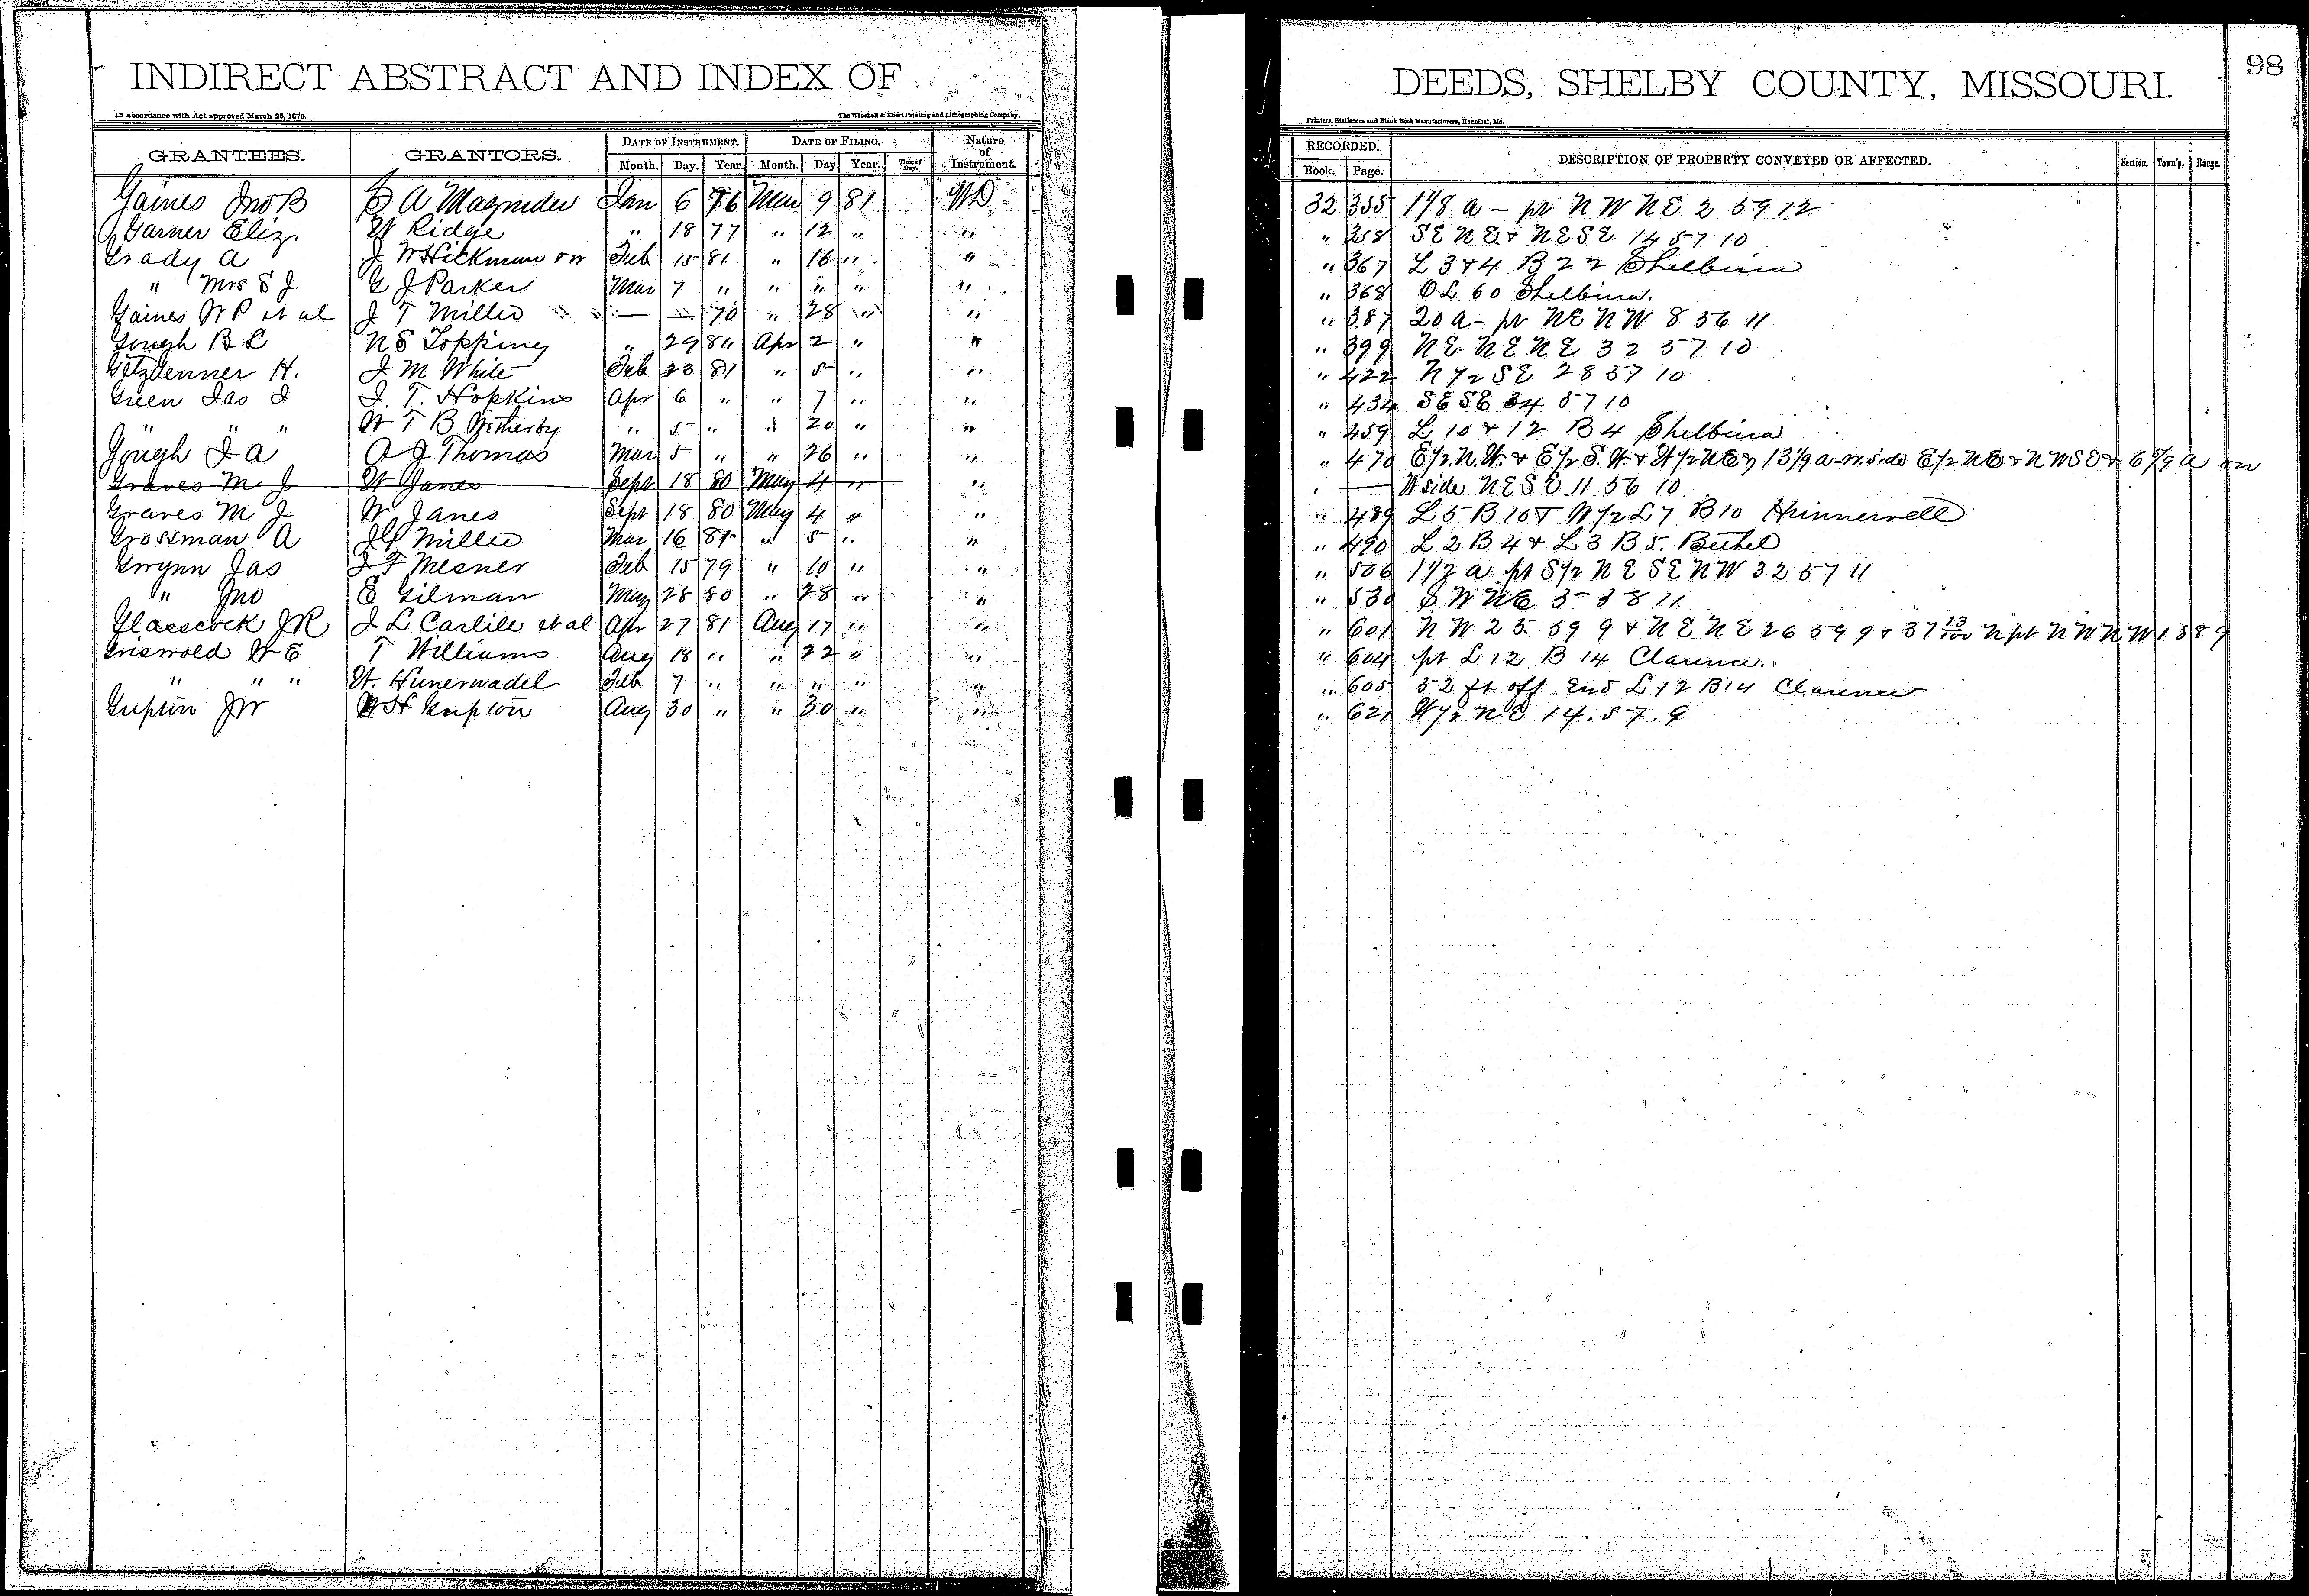 INDIRECT ABSTRACT AND INDEX OF DEEDS, SHELBY COUNTY, MISSOURI. 98
In accordance with Act approved March 25, 1870. The Winchell & Ebert Printing and Lithographing Company, Printers, Stationers and Blank Book Manufacturers, Hannibal, Mo.
GRANTEES. GRANTORS. DATE OF INSTRUMENT. DATE OF FILING. Nature of Instrument. RECORDED. DESCRIPTION OF PROPERTY CONVEYED OR AFFECTED. Section. Town'p. Range.
Month. Day. Year. Month. Day. Year. Time of Day. Book. Page.
Gaines Jno B A Magruder Jan 6 76 Mar 9 81 WD 32 355 1 1/8 a - pt NW NE 2 59 12
Garner Eliz. W Ridge " 18 77 " 12 " " " 358 SE NE & NE SE 14 57 10
Grady A J W Hickman Feb 15 81 " 16 " " " 367 L 3 & 4 B 22 Shelbina
" Mrs S J G J Parker Mar 7 " " " " " " 368 OL 60 Shelbina.
Gaines W P et al J T Miller — — 70 " 28 " " " 387 20 a - pt NE NW 8 56 11
Gough B L N S Topping " 29 81 Apr 2 " " " 399 NE NE NE 32 57 10
H. J M White Feb 23 81 " 5 " " " 422 N 1/2 SE 28 57 10
Green Jas J J. T. Hopkins Apr 6 " " 7 " " " 434 SE SE 34 57 10
" " " W T B " 5 " " 20 " " " 459 L 10 & 12 B 4 Shelbina
Gough J A A J Thomas Mar 5 " " 26 " " " 470 E 1/2 N.W. & E 1/2 S.W. & W 1/2 NE & 13 1/9 a W. side E 1/2 NE & NW SE & 6 5/9 a on
Graves M J W Janes Sept 18 80 May 4 " " " — W side NE SE 11 56 10
Graves M J W Janes Sept 18 80 May 4 " " " 489 L 5 B 10 & W 1/2 L 7 B 10 Hunnewell
Grossman A Miller Mar 16 81 " 5 " " " 490 L 2 B 4 & L 3 B 5. Bethel
Gwynn Jas J F Mesner Feb 15 79 " 10 " " " 506 1 1/2 a pt S 1/2 NE SE NW 32 57 11
" Jno E Gilman May 28 80 " 28 " " " 530 SW NE 5 58 11
Glasscock J R J L Carlile et al Apr 27 81 Aug 17 " " " 601 NW 25 59 9 & NE NE 26 59 9 & 37 13/100 N pt NW NW 1 58 9
Griswold W E T Williams Aug 18 " " 22 " " " 604 pt L 12 B 14 Clarence.
" " " W. Hunerwadel Feb 7 " " " " " " 605 52 ft off End L 12 B 14 Clarence
Gupton J W W H Gupton Aug 30 " " 30 " " " 621 W 1/2 NE 14. 57. 9